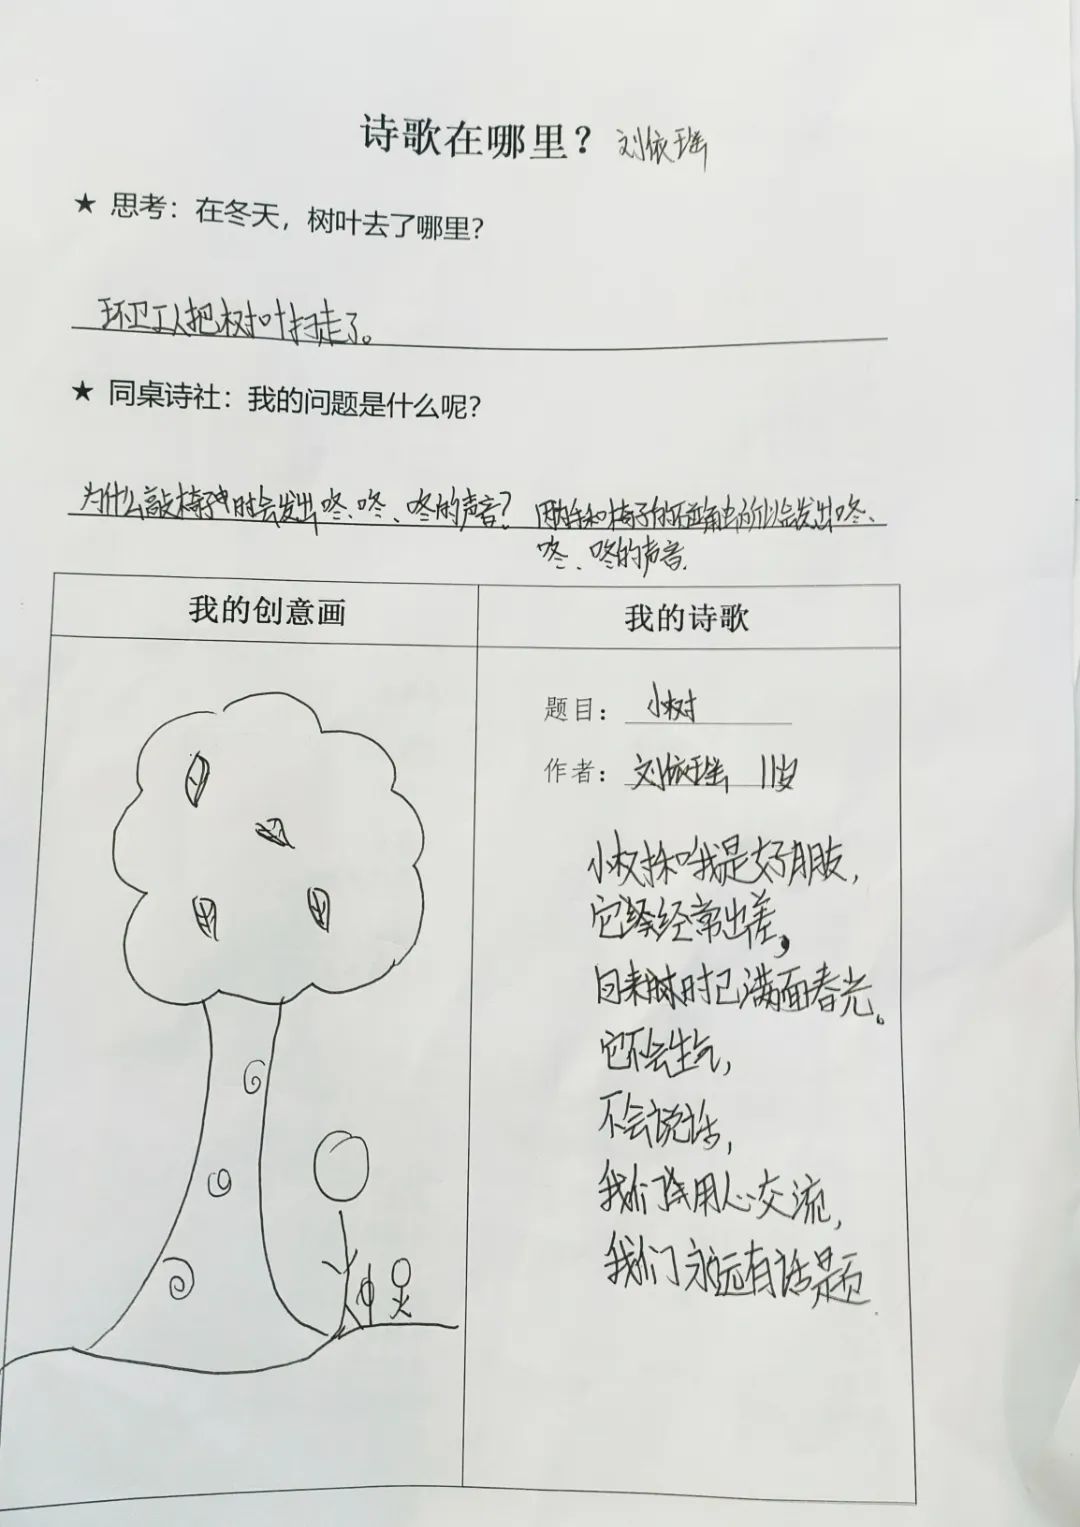 诗歌在哪里？ 刘依瑶
★ 思考：在冬天，树叶去了哪里？
环卫工人把树叶扫走了。
★ 同桌诗社：我的问题是什么呢？
为什么敲椅子时会发出咚、咚、咚的声音？ 因为和椅子的碰触所以会发出咚、
咚、咚的声音.
我的创意画 我的诗歌
题目： 小树
作者： 刘依瑶 11岁
小树和我是好朋友，
它经常出差，
回来时已满面春光。
它不会生气，
不会说话，
我们用心交流，
我们永远有话题.